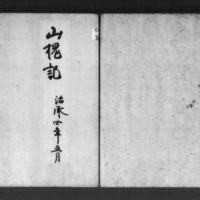 山槐記
治承四年五月